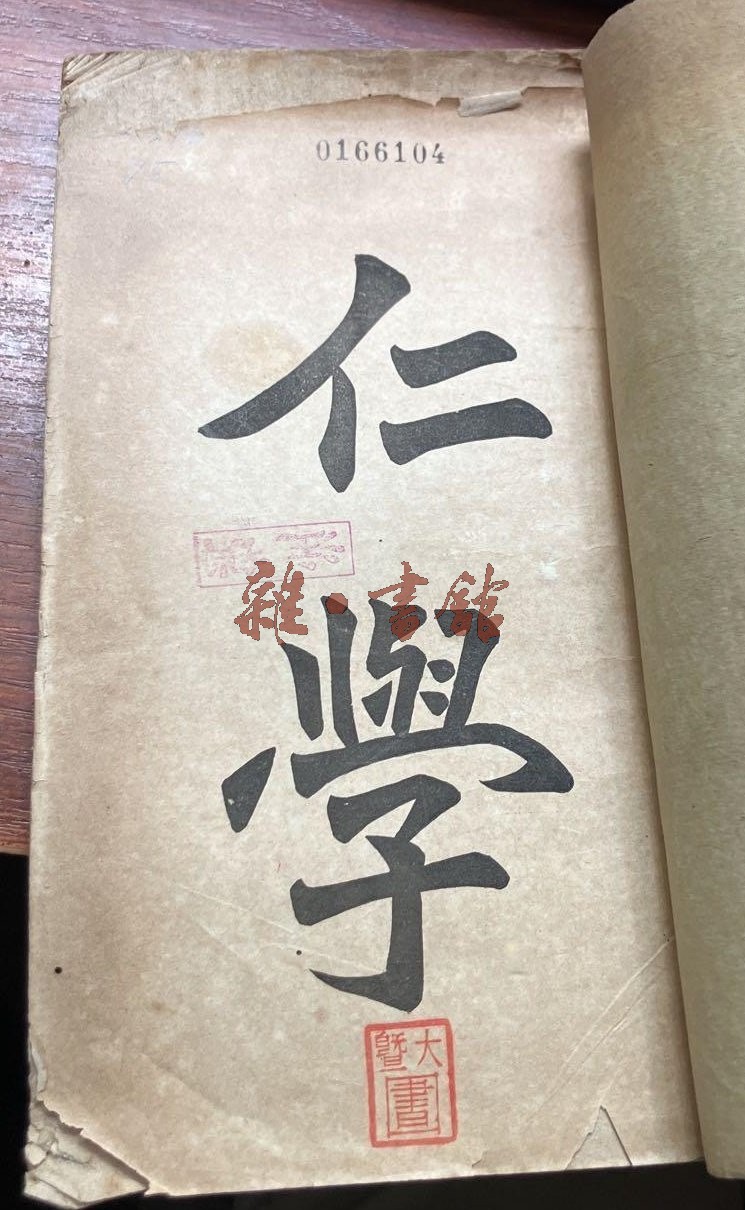 0166104
仁學
雜·書館
大暨
圕